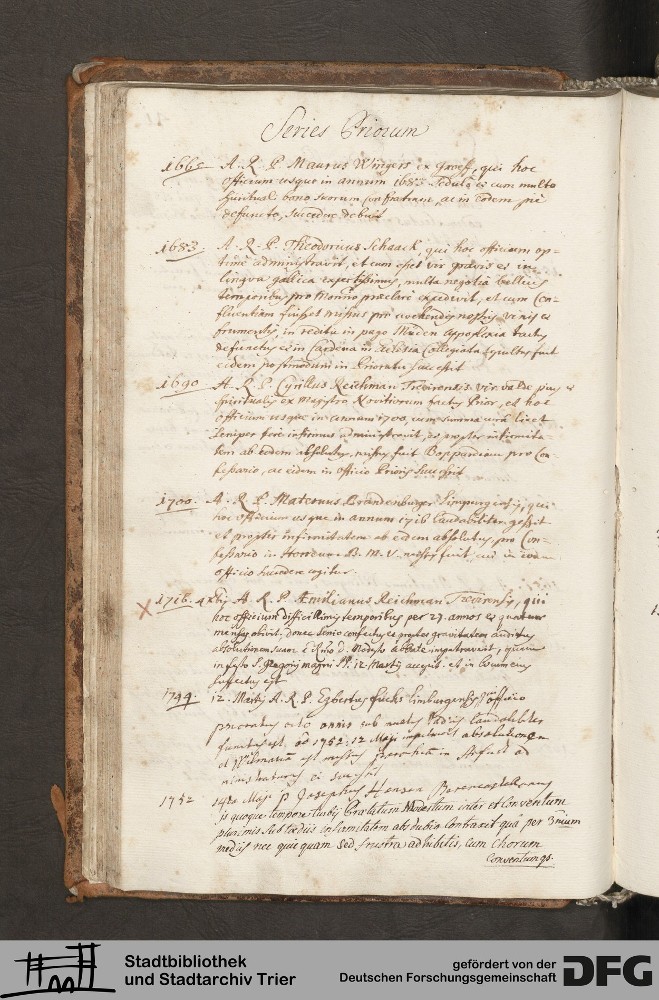 Series Priorum
166 A. R. P. Maurus Wingers ex qui hoc
officium usque in annum 1683 sedulo et cum multo
spirituali bono suorum confratrum, ac in eodem pie
defuncto, succedere debuit
1683. A. R. P. Theodoricus Schaack, qui hoc officium op-
time administravit, et cum esset vir gravis et in
lingua gallica expertissimus, multa negotia bellicis
temporibus pro Monrio praeclare expedivit, et cum Con-
fluentiam fuisset missus pro evehendis nostris vinis et
frumentis, in reditu in pago Müden appoplexia tactus
defunctus et in Cardena in Ecclesia Collegiata sepultus fuit
eidem postmodum in Prioratu successit
1690 A. R. P. Cyrillus Reichman Trevirensis vir valde pius et
spiritualis ex Magistro Novitiorum factus Prior, et hoc
officium usque in annum 1700, cum summa licet
semper fere infirmus administravit, et propter infirmita-
tem ab eodem absolutus, missus fuit Boppardiam pro Con-
fessario, ac eidem in officio Prioris successit
1700. A. R. P. Maternus Brandenburger qui
hoc officium usque in annum 1716 laudabiliter gessit
et propter infirmitatem ab eodem absolutus pro Con-
fessario in Horreum B. M. V. missus fuit, cui in eodem
officio succedere cogitur
1716. A. R. P. Æmilianus Reichman Trevirensis, qui
hoc officium difficillimis temporibus per 27 annos et quatuor
menses obivit, donec senio confectus et propter gravitatem auditus
absolutionem suam à Rmo D. Modesto abbate impetraverit, quam
in festo S. Gregorij magni PP. 12 Martij accepit. et in
suffectus est
1744. 12. Martij A. R. P. Egbertus Fuchs Limburgensis officio
prioratus octo annis sub laudabiliter
functus est, ad 1752. 12 Maji impetravit absolutionem
et est missus in ad
ministraturus ei successit
1752 14ta Maji P. Josephus Hensen Berencastellanus
is quoque tempore turbis Praelatum Modestum inter et Conventum
plurimis sub infirmitatem absdubio contraxit quâ per 3nium
medijs nec quicquam sed frustra adhibitis, cum Chorum
Conventumqs.
Stadtbibliothek
und Stadtarchiv Trier
gefördert von der
Deutschen Forschungsgemeinschaft
DFG